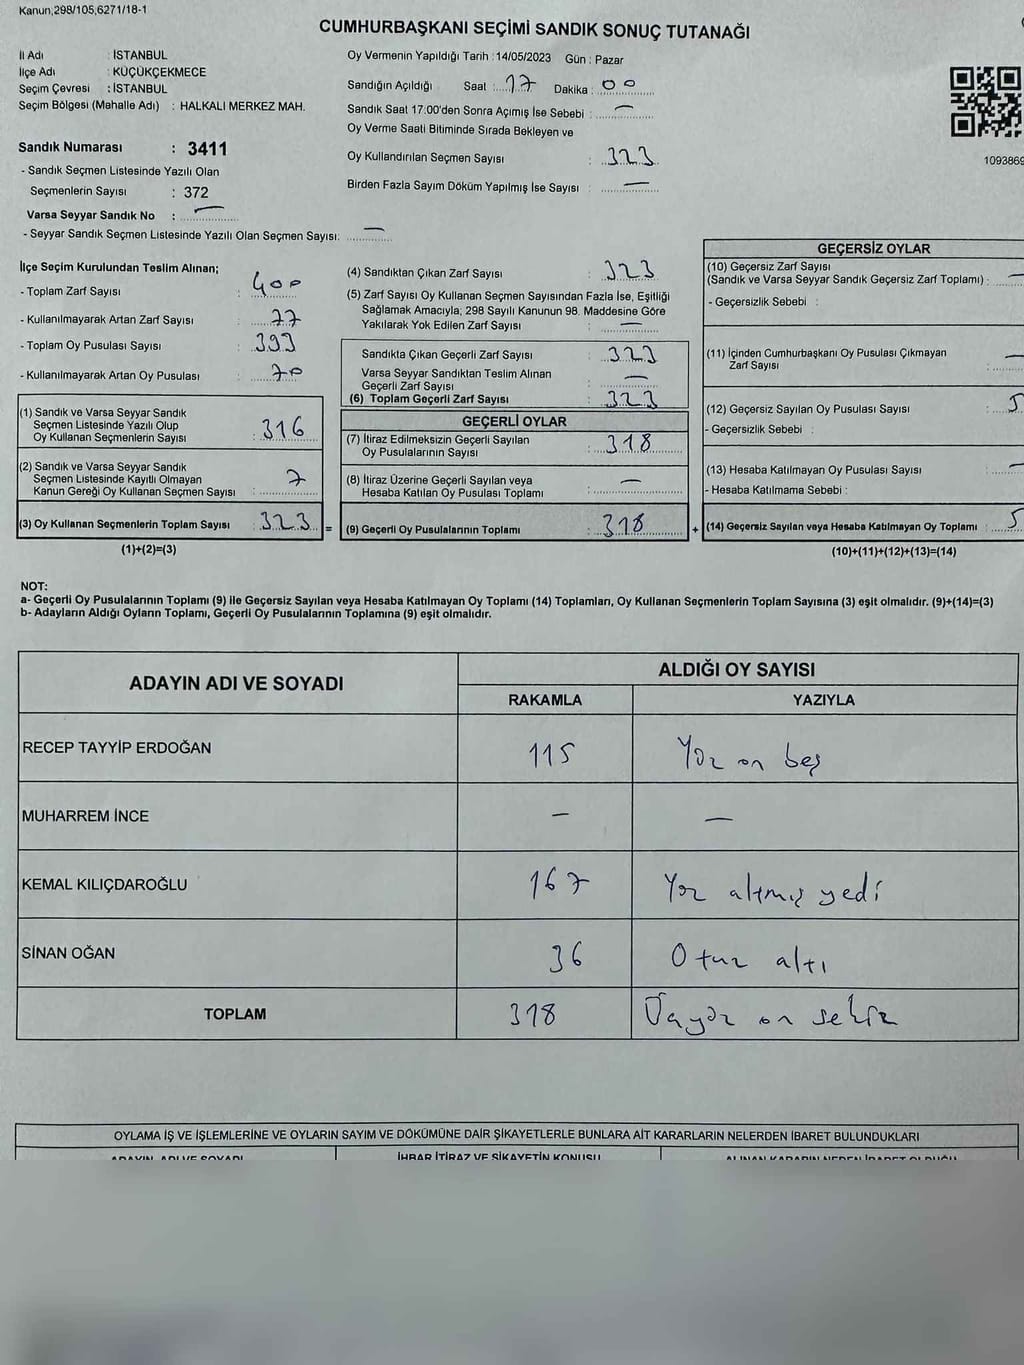 Kanun;298/105,6271/18-1
CUMHURBAŞKANI SEÇİMİ SANDIK SONUÇ TUTANAĞI
İl Adı : İSTANBUL
İlçe Adı : KÜÇÜKÇEKMECE
Seçim Çevresi : İSTANBUL
Seçim Bölgesi (Mahalle Adı) : HALKALI MERKEZ MAH.
Sandık Numarası : 3411
- Sandık Seçmen Listesinde Yazılı Olan
Seçmenlerin Sayısı : 372
Varsa Seyyar Sandık No : —
- Seyyar Sandık Seçmen Listesinde Yazılı Olan Seçmen Sayısı: —
Oy Vermenin Yapıldığı Tarih : 14/05/2023 Gün : Pazar
Sandığın Açıldığı Saat : 17 Dakika : 00
Sandık Saat 17:00'den Sonra Açımış İse Sebebi : —
Oy Verme Saati Bitiminde Sırada Bekleyen ve
Oy Kullandırılan Seçmen Sayısı : 323
Birden Fazla Sayım Döküm Yapılmış İse Sayısı : —
1093869
İlçe Seçim Kurulundan Teslim Alınan;
- Toplam Zarf Sayısı : 400
- Kullanılmayarak Artan Zarf Sayısı : 77
- Toplam Oy Pusulası Sayısı : 393
- Kullanılmayarak Artan Oy Pusulası : 70
(1) Sandık ve Varsa Seyyar Sandık
Seçmen Listesinde Yazılı Olup
Oy Kullanan Seçmenlerin Sayısı : 316
(2) Sandık ve Varsa Seyyar Sandık
Seçmen Listesinde Kayıtlı Olmayan
Kanun Gereği Oy Kullanan Seçmen Sayısı : 7
(3) Oy Kullanan Seçmenlerin Toplam Sayısı : 323 =
(1)+(2)=(3)
(4) Sandıktan Çıkan Zarf Sayısı : 323
(5) Zarf Sayısı Oy Kullanan Seçmen Sayısından Fazla İse, Eşitliği
Sağlamak Amacıyla; 298 Sayılı Kanunun 98. Maddesine Göre
Yakılarak Yok Edilen Zarf Sayısı : —
Sandıkta Çıkan Geçerli Zarf Sayısı : 323
Varsa Seyyar Sandıktan Teslim Alınan
Geçerli Zarf Sayısı : —
(6) Toplam Geçerli Zarf Sayısı : 323
GEÇERLİ OYLAR
(7) İtiraz Edilmeksizin Geçerli Sayılan
Oy Pusulalarının Sayısı : 318
(8) İtiraz Üzerine Geçerli Sayılan veya
Hesaba Katılan Oy Pusulası Toplamı : —
(9) Geçerli Oy Pusulalarının Toplamı : 318 +
GEÇERSİZ OYLAR
(10) Geçersiz Zarf Sayısı
(Sandık ve Varsa Seyyar Sandık Geçersiz Zarf Toplamı) : —
- Geçersizlik Sebebi :
(11) İçinden Cumhurbaşkanı Oy Pusulası Çıkmayan
Zarf Sayısı : —
(12) Geçersiz Sayılan Oy Pusulası Sayısı : 5
- Geçersizlik Sebebi :
(13) Hesaba Katılmayan Oy Pusulası Sayısı : —
- Hesaba Katılmama Sebebi :
(14) Geçersiz Sayılan veya Hesaba Katılmayan Oy Toplamı : 5
(10)+(11)+(12)+(13)=(14)
NOT:
a- Geçerli Oy Pusulalarının Toplamı (9) ile Geçersiz Sayılan veya Hesaba Katılmayan Oy Toplamı (14) Toplamları, Oy Kullanan Seçmenlerin Toplam Sayısına (3) eşit olmalıdır. (9)+(14)=(3)
b- Adayların Aldığı Oyların Toplamı, Geçerli Oy Pusulalarının Toplamına (9) eşit olmalıdır.
ADAYIN ADI VE SOYADI ALDIĞI OY SAYISI
RAKAMLA YAZIYLA
RECEP TAYYİP ERDOĞAN 115 Yüz on beş
MUHARREM İNCE — —
KEMAL KILIÇDAROĞLU 167 Yüz altmış yedi
SİNAN OĞAN 36 Otuz altı
TOPLAM 318 Üçyüz on sekiz
OYLAMA İŞ VE İŞLEMLERİNE VE OYLARIN SAYIM VE DÖKÜMÜNE DAİR ŞİKAYETLERLE BUNLARA AİT KARARLARIN NELERDEN İBARET BULUNDUKLARI
ADAYIN ADI VE SOYADI İHBAR İTİRAZ VE ŞİKAYETİN KONUSU ALINAN KARARIN NEDEN İBARET OLDUĞU